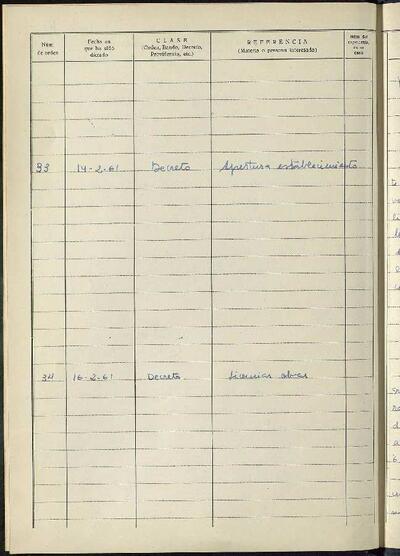 Núm. de orden
Fecha en que ha sido dictado
CLASE
(Orden, Bando, Decreto, Providencia, etc.)
REFERENCIA
(Materia o persona interesada)
33 14-2-61 Decreto Apertura establecimiento
34 16-2-61 Decreto Licencias obras